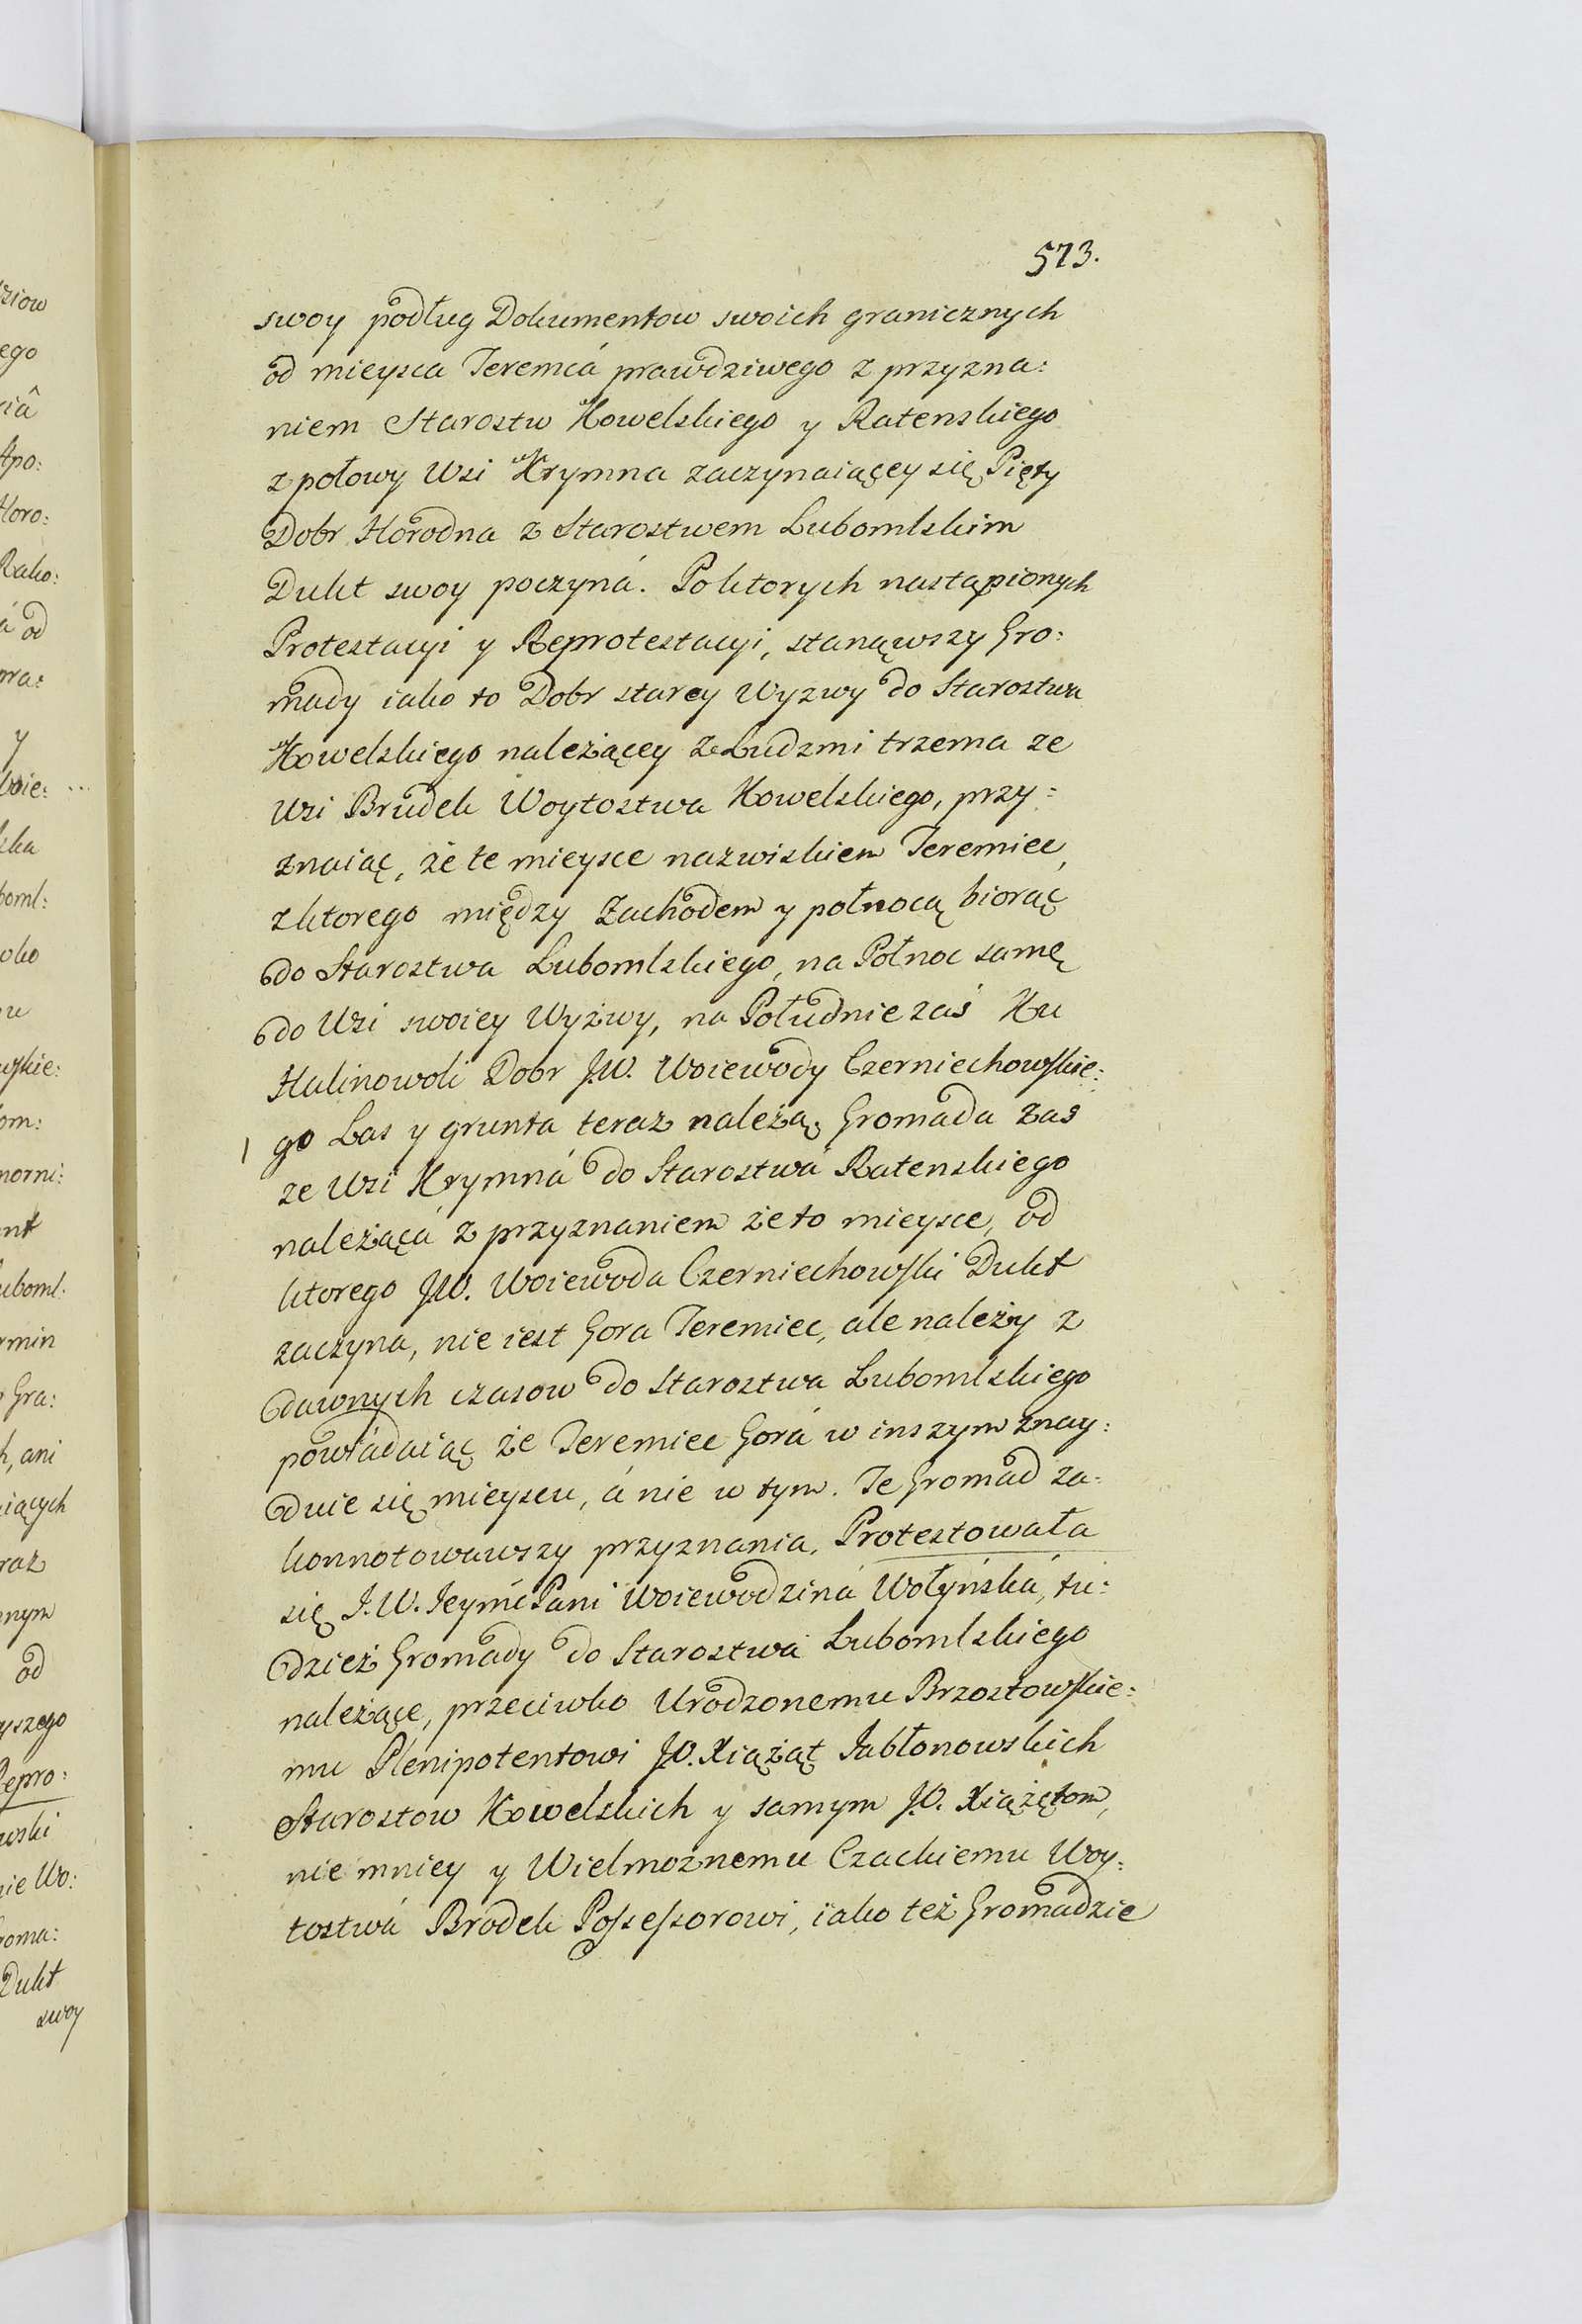 573.
swoy podług Dokumentow swoich granicznych
od mieysca Teremcá prawdziwego z przyzna:
niem Starostw Kowelskiego y Ratenskiego
z połowy Wsi Krymna zaczynaiącey się Pięty
Dobr Horodna z Starostwem Lubomlskim
Dukt swoy poczyná. Po ktorych nastąpionych
Protestacyi y Reprotestacyi, stanąwszy Gro:
mady iako to Dobr starey Wyzwy do Starostwa
Kowelskiego należącey z Ludzmi trzema ze
Wsi Brudek Woytostwa Kowelskiego, przy:
znaiąc, że te mieysce nazwiskiem Teremiec,
z ktorego między Zachodem y połnocą biorąc
do Starostwa Lubomlskiego, na Połnoc samę
do Wsi swoiey Wyżwy, na Południe zaś Ku
Halinowoli Dobr J.W. Woiewody Czerniechowskie:
go Las y grunta teraz należą. Gromada zas
ze Wsi Krymná do Starostwá Ratenskiego
należącá z przyznaniem że to mieysce, od
ktorego J.W. Woiewoda Czerniechowski Dukt
zaczyna, nie iest Gora Teremiec, ale należy z
dawnych czasow do Starostwa Lubomlskiego
powiadaiąc że Teremiec Gorá w inszym znay:
duie się mieyscu, á nie w tym. Te Gromad za:
konnotowawszy przyznania, Protestowała
się J.W. Jeymć Pani Woiewodziná Wołyńská, tu:
dzież Gromady do Starostwa Lubomlskiego
należące, przeciwko Urodzonemu Brzostowskie:
mu Plenipotentowi J.O. Xiążąt Jabłonowskich
Starostow Kowelskich y samym J.O. Xiążętom,
nie mniey y Wielmożnemu Czackiemu Woy:
tostwá Brodek Possessorowi, iako też Gromadzie